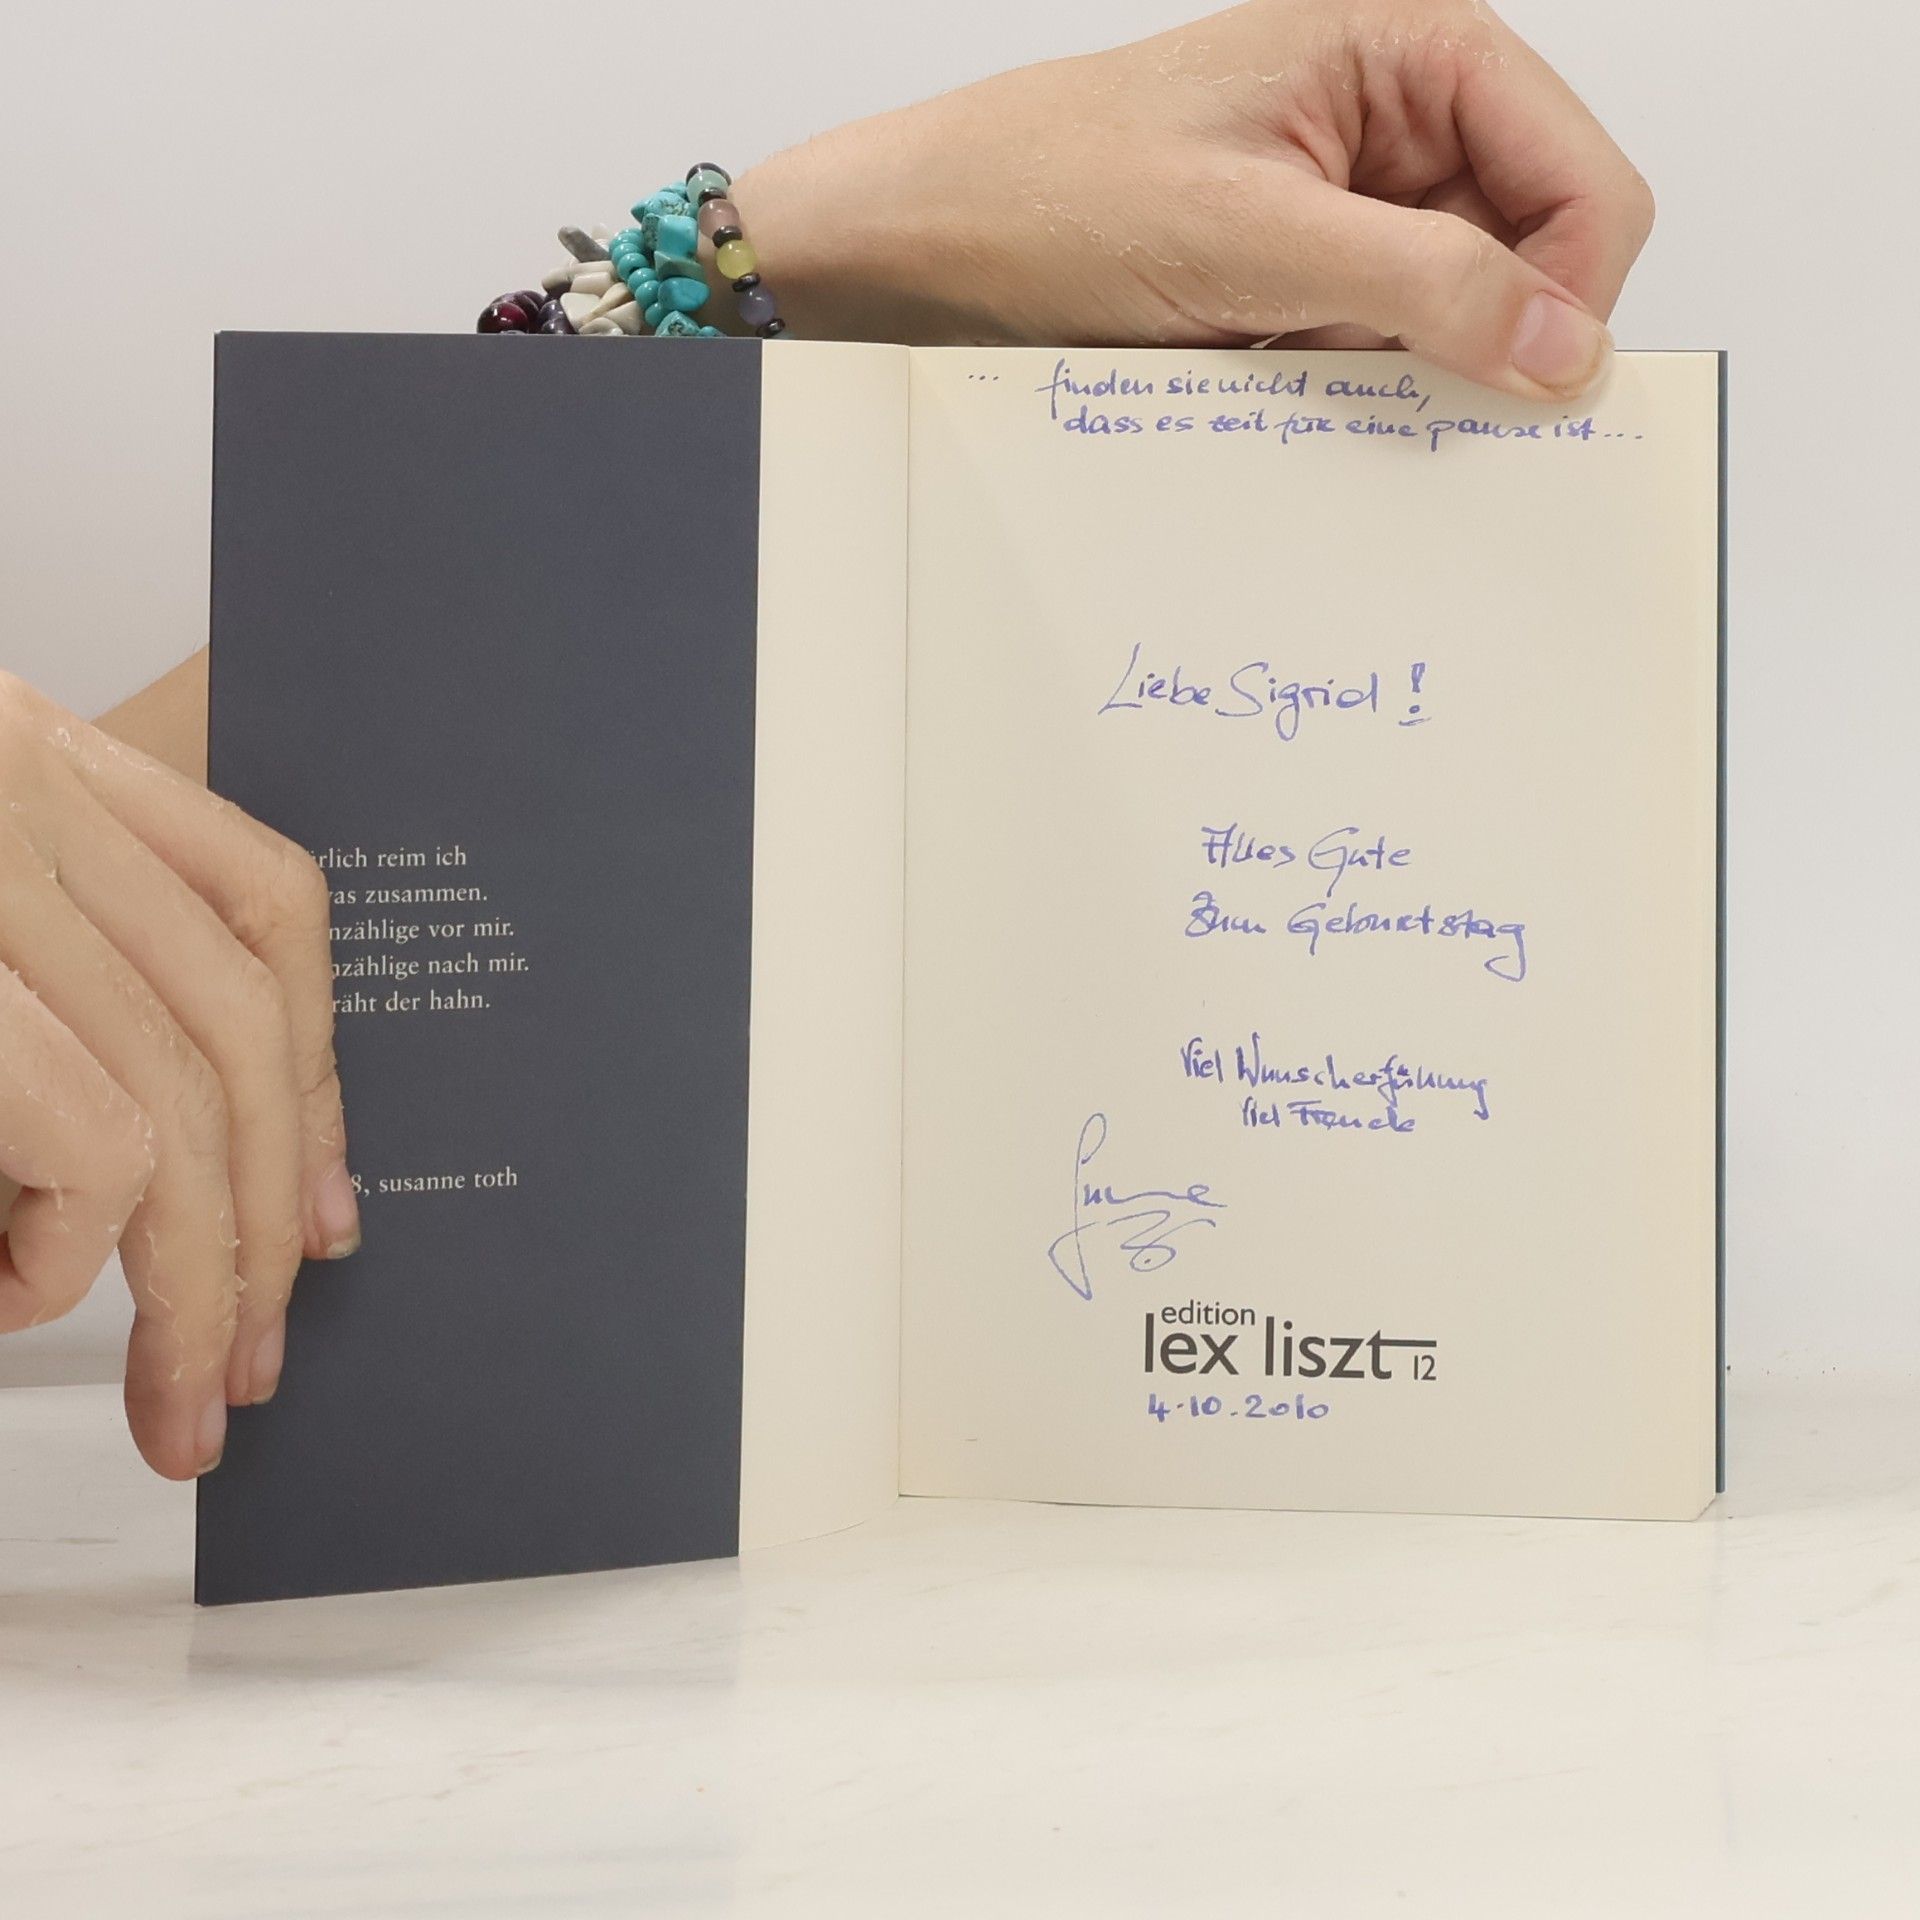 reim ich
zusammen.
vor mir.
nach mir.
der hahn.
8, susanne toth
... finden sie nicht auch,
dass es zeit für eine pause ist...
Liebe Sigrid!
Alles Gute
Zum Geburtstag
Viel Wunscherfüllung
Viel Freude
edition
lex liszt 12
4.10.2010